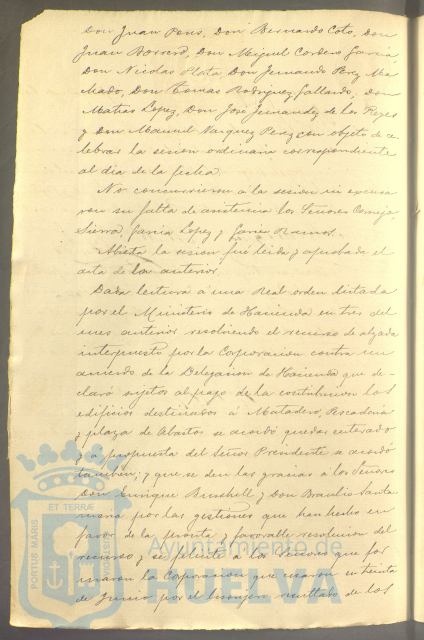 Don Juan Pons, Don Bernardo Coto, Don
Juan Borrero, Don Miguel Cordero García,
Don Nicolas Plata, Don Fernando Perez Ma-
chado, Don Tomas Rodriguez Gallardo, Don
Matias Lopez, Don José Fernandez de los Reyes
y Don Manuel Vazquez Perez con objeto de ce-
lebrar la sesion ordinaria correspondiente
al dia de la fecha.
No concurrieron a la sesion ni excusa
ron su falta de asistencia los Señores
Sierra, Garcia Lopez y Garcia Ramos.
Abierta la sesion, fué leida y aprobada el
acta de la anterior.
Dada lectura a una Real orden dictada
por el Ministerio de Hacienda en tres del
mes anterior resolviendo el recurso de alzada
interpuesto por la Corporacion contra un
acuerdo de la Delegacion de Hacienda que de-
claró sujetos al pago de la contribucion los
edificios destinados a Matadero, Pescaderia
y plaza de Abastos se acordó quedar enterado
y a propuesta del Señor Presidente se acordó
tambien; y que se den las gracias a los Señores
Don Enrique y Don Braulio Santa
maria por las gestiones que han hecho en
favor de la pronta y favorable resolucion del
recurso y se felicite a los Señores que for
maron la Corporacion que cesaron en treinta
de Junio por el lisonjero resultado de los
PORTUS MARIS ET TERRÆ CUSTODIA
Ayuntamiento de
HUELVA